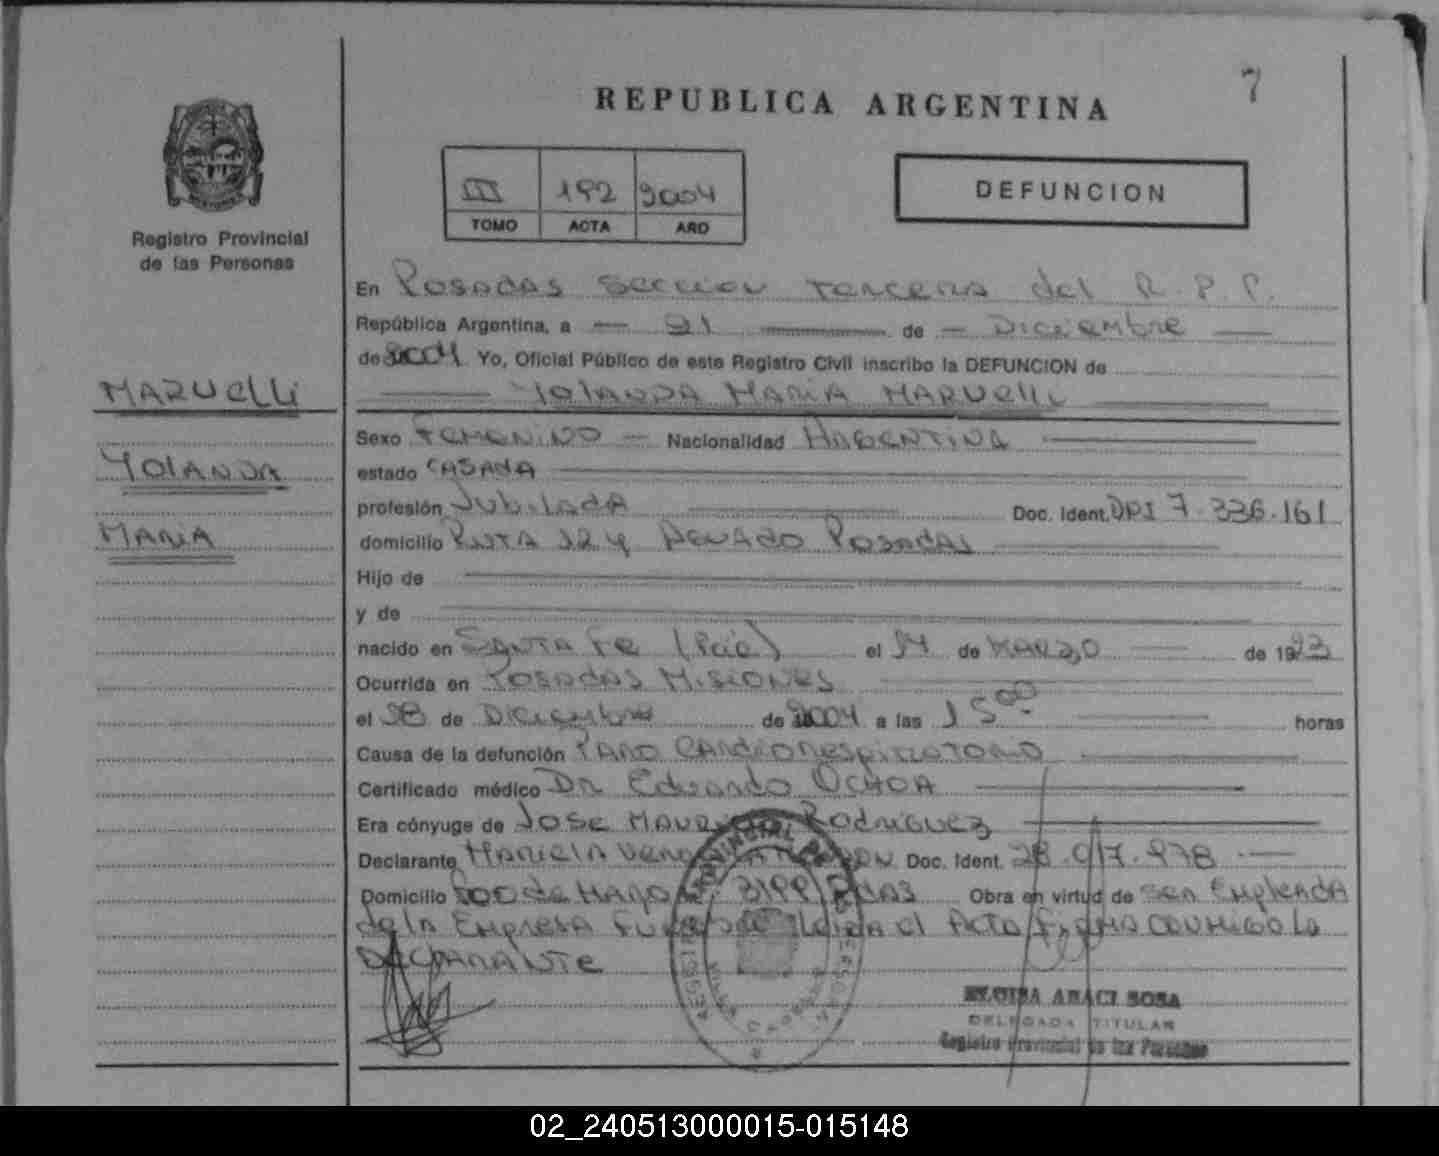 7
REPUBLICA ARGENTINA
III 192 2004
TOMO ACTA AÑO
DEFUNCION
Registro Provincial
de las Personas
En Posadas Seccion Tercera del R.P.P.
República Argentina, a 21 de Diciembre
de 2004 Yo, Oficial Público de este Registro Civil inscribo la DEFUNCION de
Yolanda Maria Maruelli
MARUELLI
YOLANDA
MARIA
Sexo Femenino Nacionalidad Argentina
estado CASADA
profesión Jubilada Doc. Ident. DNI 7.336.161
domicilio Ruta 12 y Posadas
Hijo de
y de
nacido en Santa Fe (Pcia) el 14 de Marzo de 1923
Ocurrida en Posadas Misiones
el 18 de Diciembre de 2004 a las 15 00 horas
Causa de la defunción Paro Cardiorespiratorio
Certificado médico Dr Eduardo Ochoa
Era cónyuge de Jose Rodriguez
Declarante Mariela Doc. Ident. 28. .978
Domicilio de Mayo 3199 Pdas Obra en virtud de ser Empleada
de la Empresa el Acta firma conmigo la
Declarante
ELOISA ARACI SOSA
DELEGADA TITULAR
Registro Provincial de las Personas
02_240513000015-015148